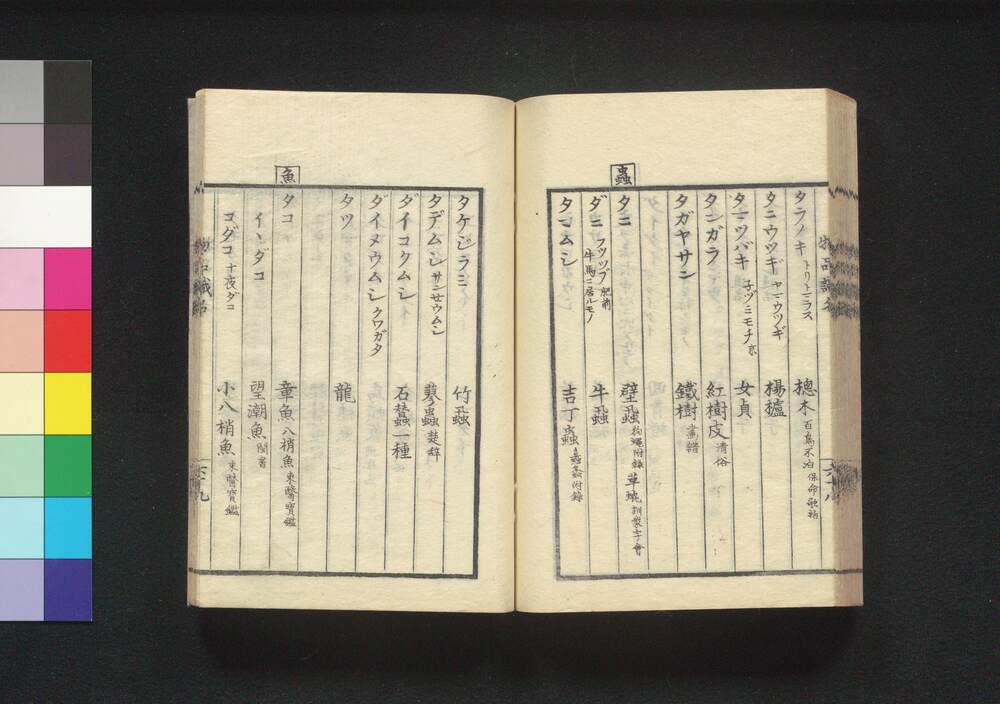 タラノキ トリトマラス 摠木 百鳥不泊 保命歌括
タニウツギ ヤマウツギ 楊櫨
タマツバキ 子ヅミモチ 京 女貞
タンガラ 紅樹皮 清俗
タガヤサン 鐵樹
蟲
タニ 壁蝨 蝿附録 草蜱 訓蒙字會
ダニ フツツブ 肥前 牛馬ニ居ルモノ 牛蝨
タマムシ 吉丁蟲 蟲附録
タケジラミ 竹蝨
タデムシ サンせウムシ 蓼蟲 楚辞
タイコクムシ 石蠶一種
ダイメウムシ クワガタ
タツ 龍
魚
タコ 章魚 八梢魚 東醫寳鑑
イヽダコ 望潮魚 閩書
コダコ 十夜ダコ 小八梢魚 東醫寳鑑